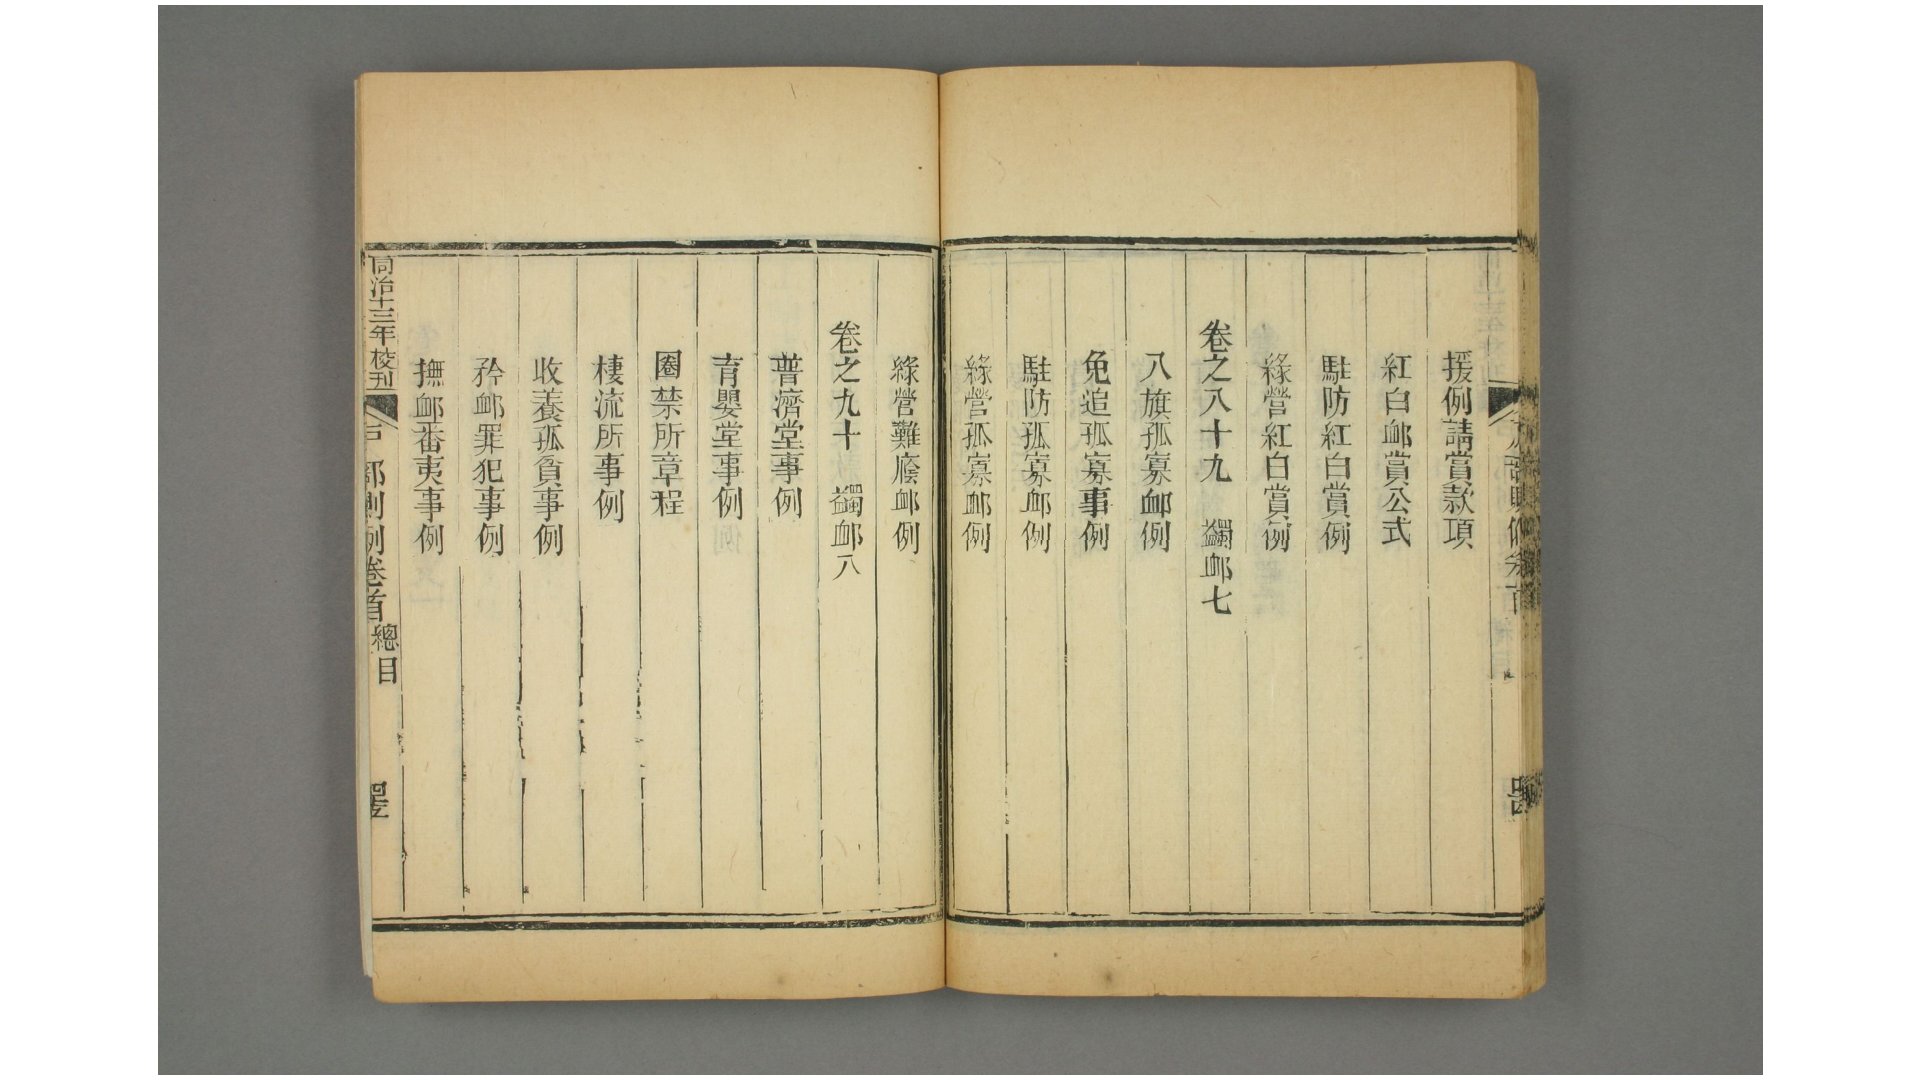 援例請賞款項
紅白䘏賞公式
駐防紅白賞例
綠營紅白賞例
卷之八十九　蠲䘏七
八旗孤寡䘏例
免追孤寡事例
駐防孤寡䘏例
綠營孤寡䘏例
綠營難廕䘏例
卷之九十　蠲䘏八
普濟堂事例
育嬰堂事例
圈禁所章程
棲流所事例
收養孤貧事例
矜䘏罪犯事例
撫䘏番夷事例
同治十三年校刊
戶部則例卷首
總目